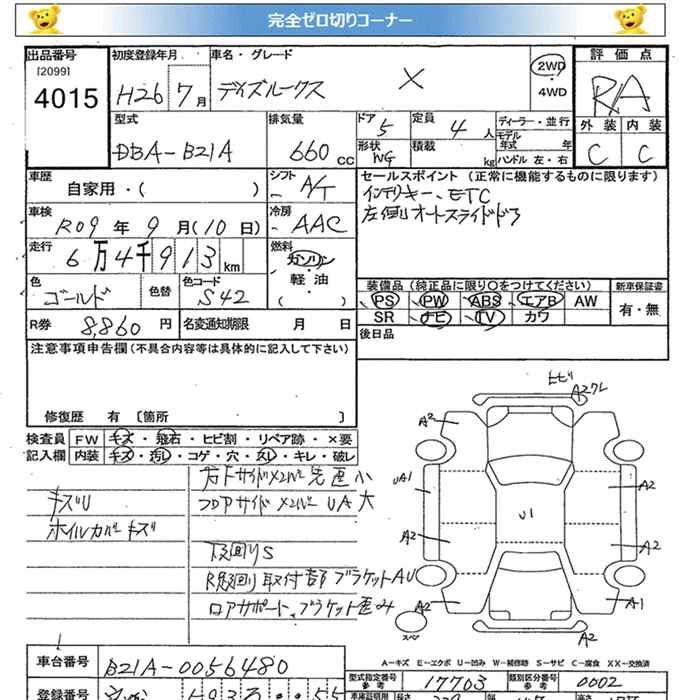 完全ゼロ切りコーナー
出品番号 初度登録年月 車名・グレード 2WD 評価点
[2099]
4015 H26 7月 デイズルークス X 4WD RA
型式 排気量 ドア 5 定員 4人 ディーラー・並行 外装 内装
DBA-B21A 660cc 形状 WG 積載 kg モデル年式 年 C C
ハンドル 左・右
車歴 自家用・( ) シフト A/T セールスポイント (正常に機能するものに限ります)
車検 R09年9月(10日) 冷房 AAC インテリキー、ETC
左側オートスライドドア
走行 6万4千913km 燃料 ガソリン 軽・油 ( )
色 ゴールド 色替 色コード S42
装備品 (純正品に限り○をつけてください) 新車保証書
PS PW ABS エアB AW 有・無
SR ナビ TV カワ
R券 8,860円 名変通知期限 月 日 後日品
注意事項申告欄(不具合内容等は具体的に記入して下さい)
修復歴 有 〔箇所 〕
検査員 FW キズ・飛石・ヒビ割・リペア跡・×要
記入欄 内装 キズ・汚れ・コゲ・穴・スレ・キレ・破レ
キズU
ホイルカバーキズ
下回りS
ロアサポート、ブラケット歪み
ヒビ
A2ワレ
A2
UA1
A2
U1
A2
A2
A2
A1
スペア
A2
A…キズ E…エクボ U…凹み W…補修跡 S…サビ C…腐食 XX…交換済
車台番号 B21A-0056480
型式指定番号 参考 17703 類別区分番号 参考 0002
登録番号